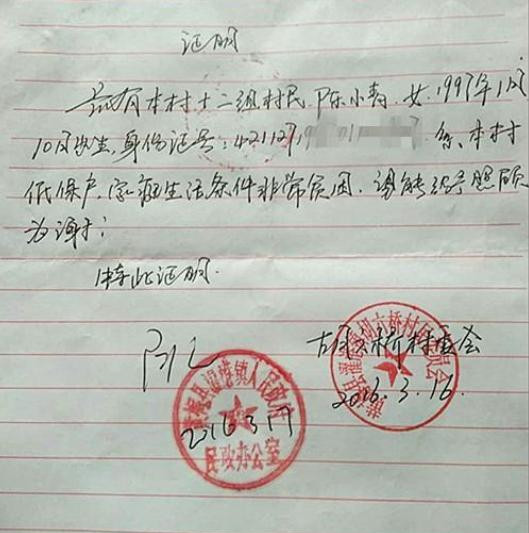 证明
兹有本村十二组村民陈小青,女,1997年1月
10日出生,身份证号:421127,19 01 系本村
低保户,家庭生活条件非常贫困,请能给予照顾
为谢!
特此证明.
古月六桥村委会
2016.3.16
2016 3 17
黄梅县濯港镇人民政府
民政办公室